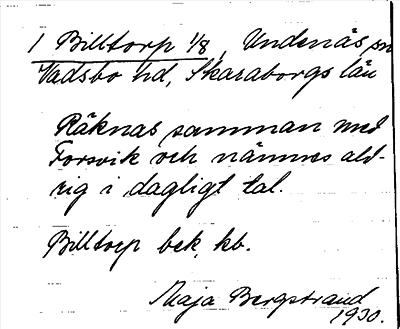 1 Billtorp 1/8, Undenäs sn
Vadsbo hd, Skaraborgs län
Räknas samman med
Forsvik och nämnes ald-
rig i dagligt tal.
Billtorp bek. kb.
Maja Bergstrand
1930.